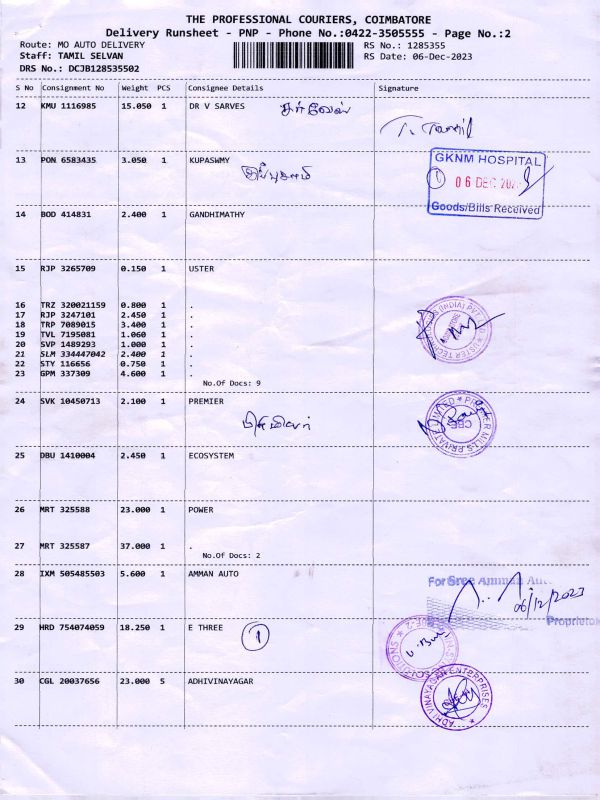 THE PROFESSIONAL COURIERS, COIMBATORE
Delivery Runsheet - PNP - Phone No.:0422-3505555 - Page No.:2
Route: MO AUTO DELIVERY RS No.: 1285355
Staff: TAMIL SELVAN RS Date: 06-Dec-2023
DRS No.: DCJB128535502
S No Consignment No Weight PCS Consignee Details Signature
12 KMU 1116985 15.050 1 DR V SARVES
13 PON 6583435 3.050 1 KUPASWMY
GKNM HOSPITAL
1 06 DEC 202
Goods/Bills Received
14 BOD 414831 2.400 1 GANDHIMATHY
15 RJP 3265709 0.150 1 USTER
16 TRZ 320021159 0.800 1 .
17 RJP 3247101 2.450 1 .
18 TRP 7089015 3.400 1 .
19 TVL 7195081 1.060 1 .
20 SVP 1489293 1.000 1 .
21 SLM 334447042 2.400 1 .
22 STY 116656 0.750 1 .
23 GPM 337309 4.600 1 .
No.Of Docs: 9
24 SVK 10450713 2.100 1 PREMIER
PREMIER MILLS PRIVATE LIMITED
CBE
25 DBU 1410004 2.450 1 ECOSYSTEM
26 MRT 325588 23.000 1 POWER
27 MRT 325587 37.000 1 .
No.Of Docs: 2
28 IXM 505485503 5.600 1 AMMAN AUTO
For Sree Amman
06/12/2023
Proprietor
29 HRD 754074059 18.250 1 E THREE 1
30 CGL 20037656 23.000 5 ADHIVINAYAGAR
ADHIVINAYAGAR ENTERPRISES